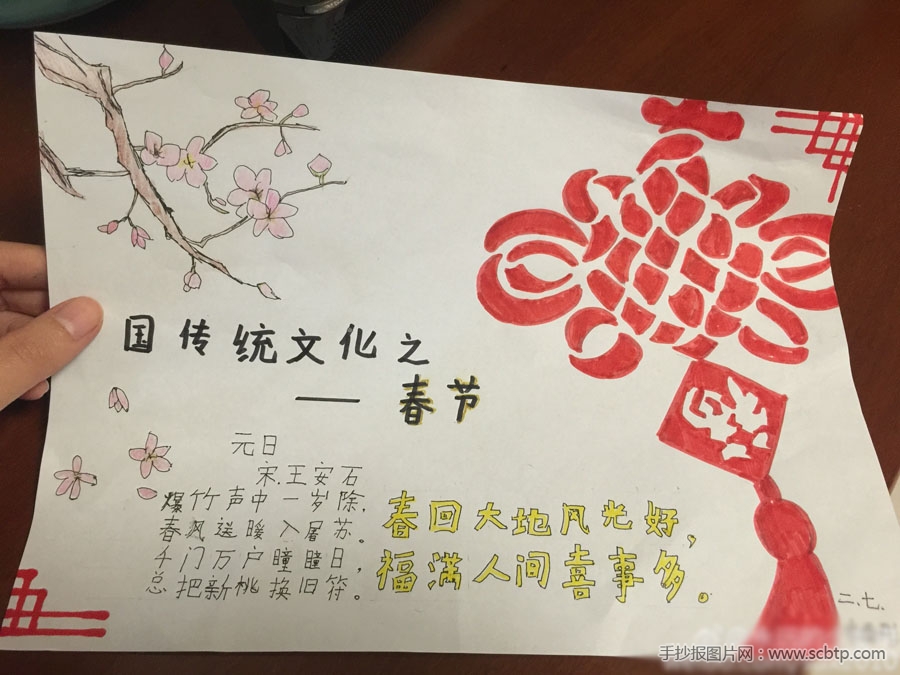 国传统文化之
—— 春节
元日
宋.王安石
爆竹声中一岁除,
春风送暖入屠苏。
千门万户瞳瞳日,
总把新桃换旧符。
春回大地风光好,
福满人间喜事多。
二.七.
手抄报图片网:www.scbtp.com